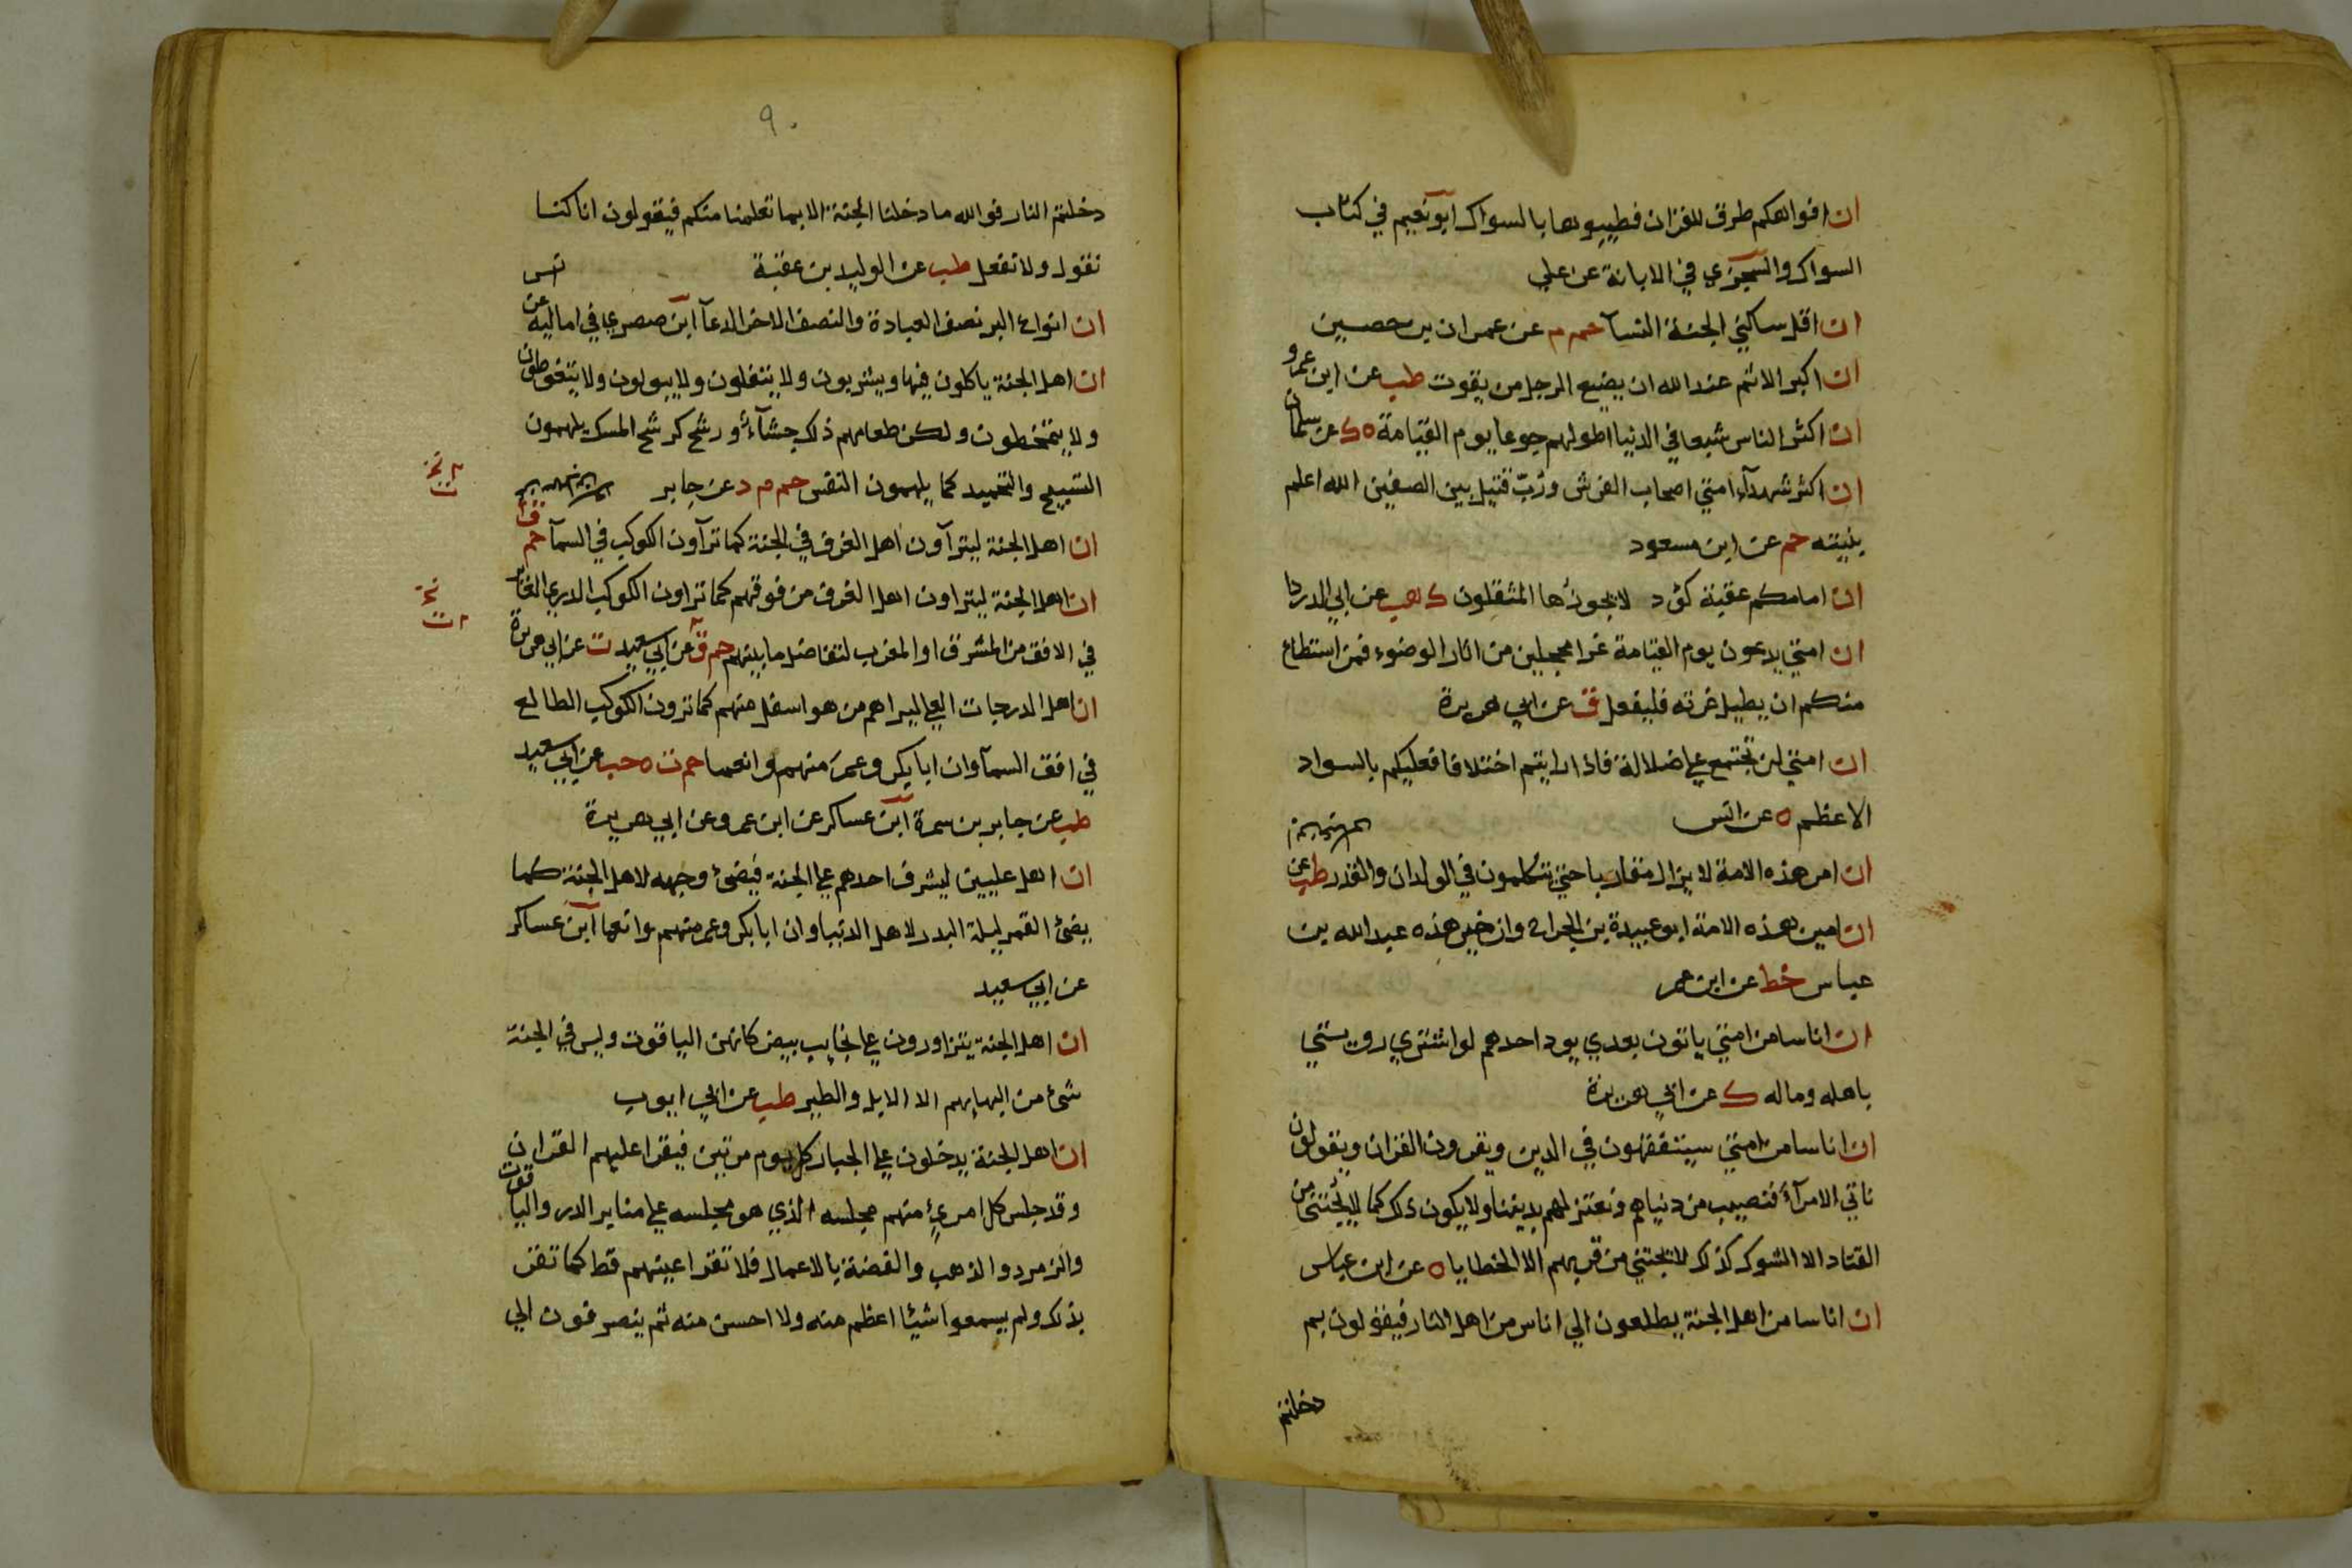 ان افواهكم طرق للقران فطيبوها بالسواك ابو نعيم في كتاب
السواك والسجزي في الابانة عن علي
ان اقل ساكني الجنة النسآ حم م عن عمران بن حصين
ان اكبر الاثم عند الله ان يضيع الرجل من يقوت طب عن ابن عمرو
ان اكثر الناس شبعا في الدنيا اطولهم جوعا يوم القيامة ه ك عن سلمان
ان اكثر شهدآء امتي اصحاب الفرش ورُبّ قتيل بين الصفين الله اعلم
بنيته حم عن ابن مسعود
ان امامكم عقبة كؤد لا يجوزُها المثقلون ك هب عن ابي الدردا
ان امتي يدعون يوم القيامة غرا محجلين من اثار الوضوء فمن استطاع
منكم ان يطيل غرته فليفعل ق عن ابي هريرة
ان امتي لن تجتمع على ضلالة فاذا رايتم اختلافا فعليكم بالسواد
الاعظم ه عن انس
ان امر هذه الامة لا يزال مقاربا حتى يتكلمون في الولدان والقدر طب عن
ان امين هذه الامة ابو عبيدة بن الجراح وان خير هذه عبد الله بن
عباس خط عن ابن عمر
ان اناسا من امتي ياتون بعدي يود احدهم لو اشترى رويتي
باهله وماله ك عن ابي هريرة
ان اناسا من امتي سيتفقهون في الدين ويقرون القران ويقولون
ناتي الامرآء فنصيب من دنياهم ونعتزلهم بديننا ولا يكون ذلك كما لا يُجتنى من
القتاد الا الشوك كذلك لا يجتنى من قربهم الا الخطايا ه عن ابن عباس
ان اناسا من اهل الجنة يطلعون الى اناس من اهل النار فيقولون بم
دخلتم
٩٠
دخلتم النار فوالله ما دخلنا الجنة الا بما تعلمنا منكم فيقولون انا كنا
نقول ولا نفعل طب عن الوليد بن عقبة
انس
ان انواع البر نصف العبادة والنصف الاخر الدعآ ابن صصرى في اماليه عن
ان اهل الجنة ياكلون فيها ويشربون ولا يتفلون ولا يبولون ولا يتغوطون
ولا يتمخطون ولكن طعامهم ذلك جشآءٌ ورشح كرشح المسك يلهمون
التسبيح والتحميد كما يلهمون النفس حم م د عن جابر
ان اهل الجنة ليترآون اهل الغرف في الجنة كما ترآون الكوكب في السمآ حم ق
ان اهل الجنة ليتراون اهل الغرف من فوقهم كما تراون الكوكب الدري الغابر
في الافق من المشرق او المغرب لتفاضل ما بينهم حم ق عن ابي سعيد ت عن ابي هريرة
ان اهل الدرجات العلى ليراهم من هو اسفل منهم كما ترون الكوكب الطالع
في افق السمآ وان ابا بكر وعمر منهم وانعما حم ت ه حب عن ابي سعيد
طب عن جابر بن سمرة ابن عساكر عن ابن عمرو عن ابي هريرة
ان اهل عليين ليشرف احدهم على الجنة فيضئ وجهه لاهل الجنة كما
يضئ القمر ليلة البدر لاهل الدنيا وان ابا بكر وعمر منهم وانعما ابن عساكر
عن ابي سعيد
ان اهل الجنة يتزاورون على نجايب بيض كانهن الياقوت وليس في الجنة
شئ من البهايم الا الابل والطير طب عن ابي ايوب
ان اهل الجنة يدخلون على الجبار كل يوم مرتين فيقرا عليهم القران
وقد جلس كل امرئٍ منهم مجلسه الذي هو مجلسه على منابر الدر والياقوت
والزمرد والذهب والفضة بالاعمال فلا تقر اعينهم قط كما تقر
بذلك ولم يسمعوا شيئا اعظم منه ولا احسن منه ثم ينصرفون الى